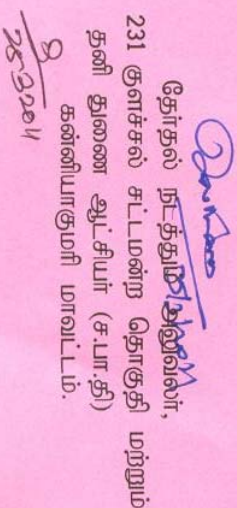 தேர்தல் நடத்தும் அலுவலர்,
231 குளச்சல் சட்டமன்ற தொகுதி மற்றும்
தனி துணை ஆட்சியர் (ச.பா.தி)
கன்னியாகுமரி மாவட்டம்.